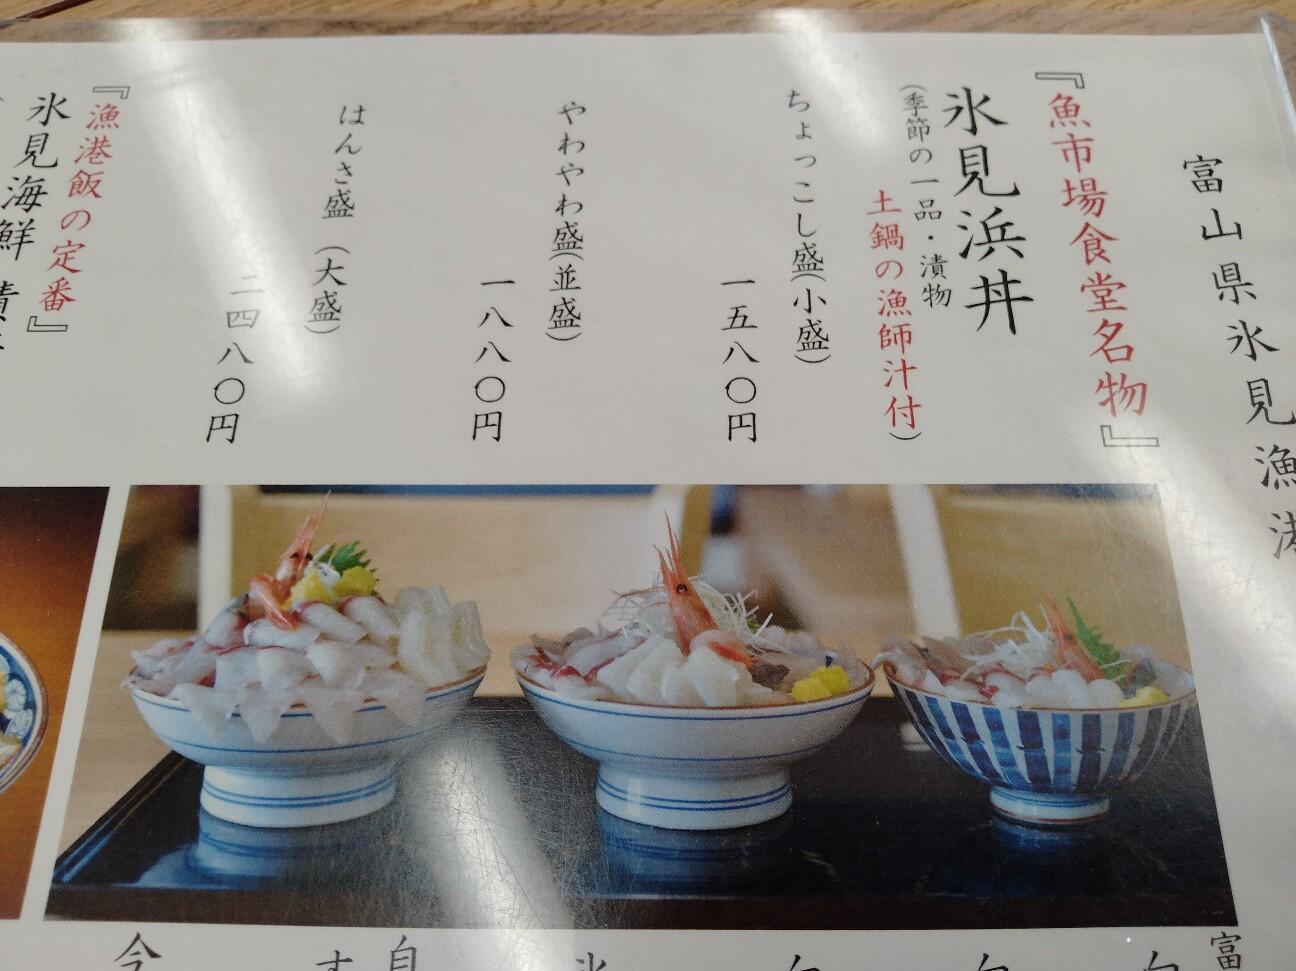 富山県氷見漁港
『魚市場食堂名物』
氷見浜丼
(季節の一品・漬物
土鍋の漁師汁付)
ちょっこし盛(小盛)
一五八〇円
やわやわ盛(並盛)
一八八〇円
はんさ盛(大盛)
二四八〇円
『漁港飯の定番』
氷見海鮮
富
自
す
今